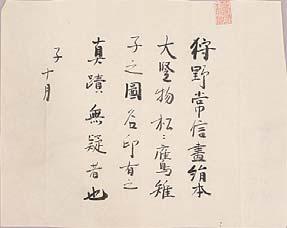 狩野常信畫絹本
大竪物松ニ鷹雉
子之圖名印有之
真蹟無疑者也
子十月